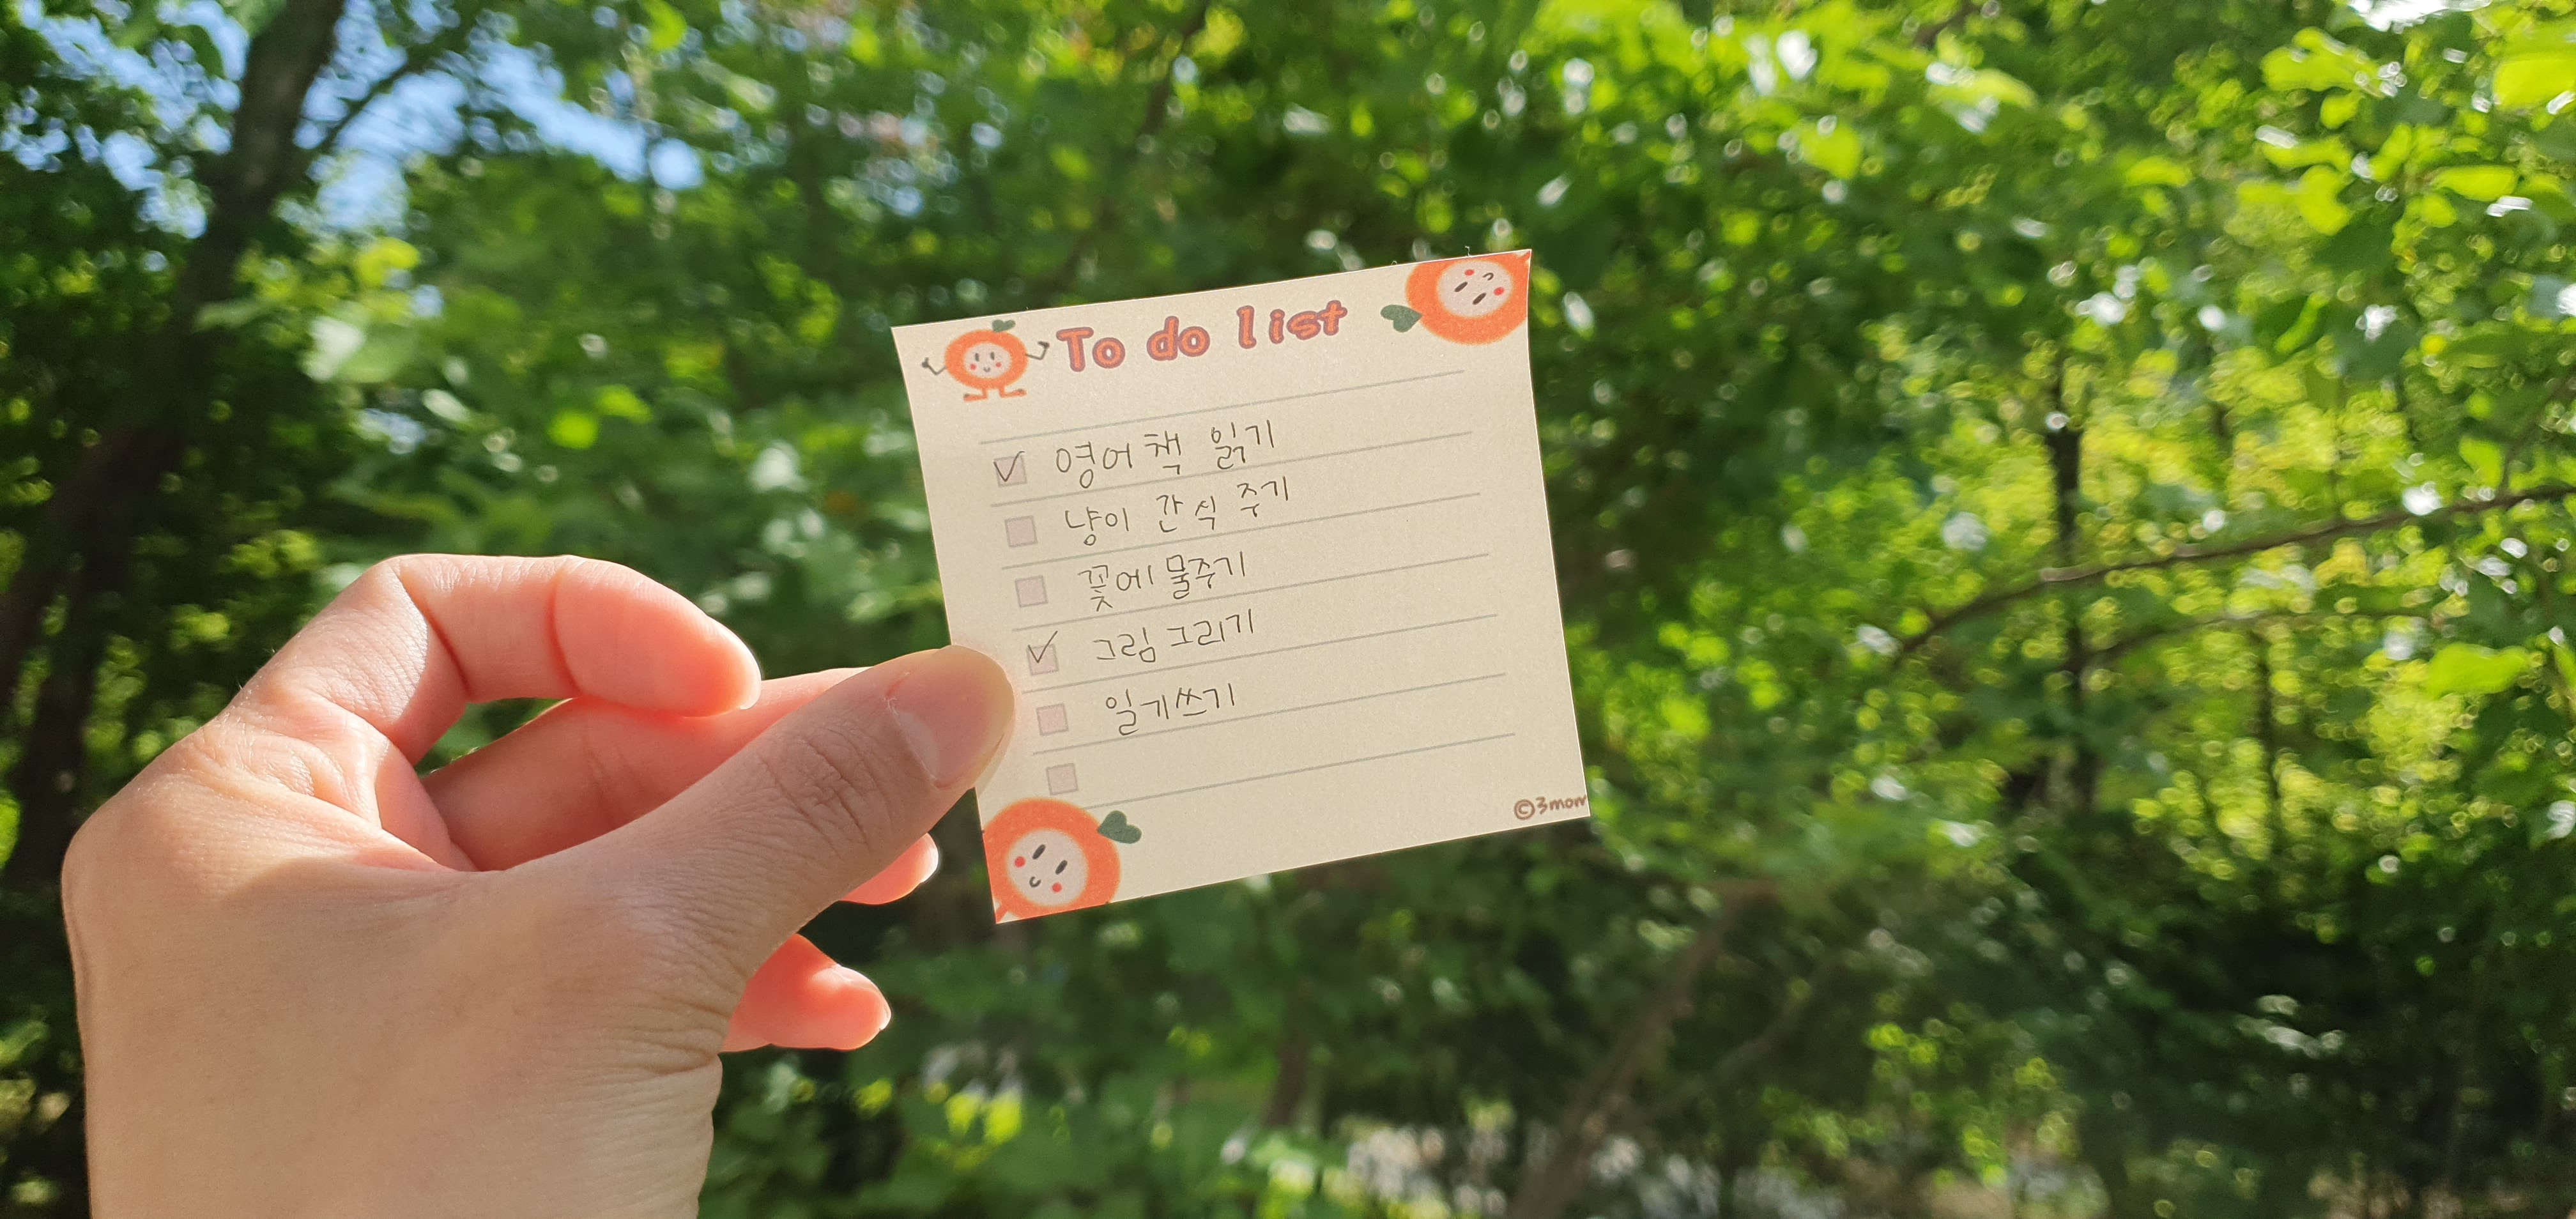 To do list
영어책 읽기
냥이 간식 주기
꽃에 물주기
그림 그리기
일기쓰기
©3mom